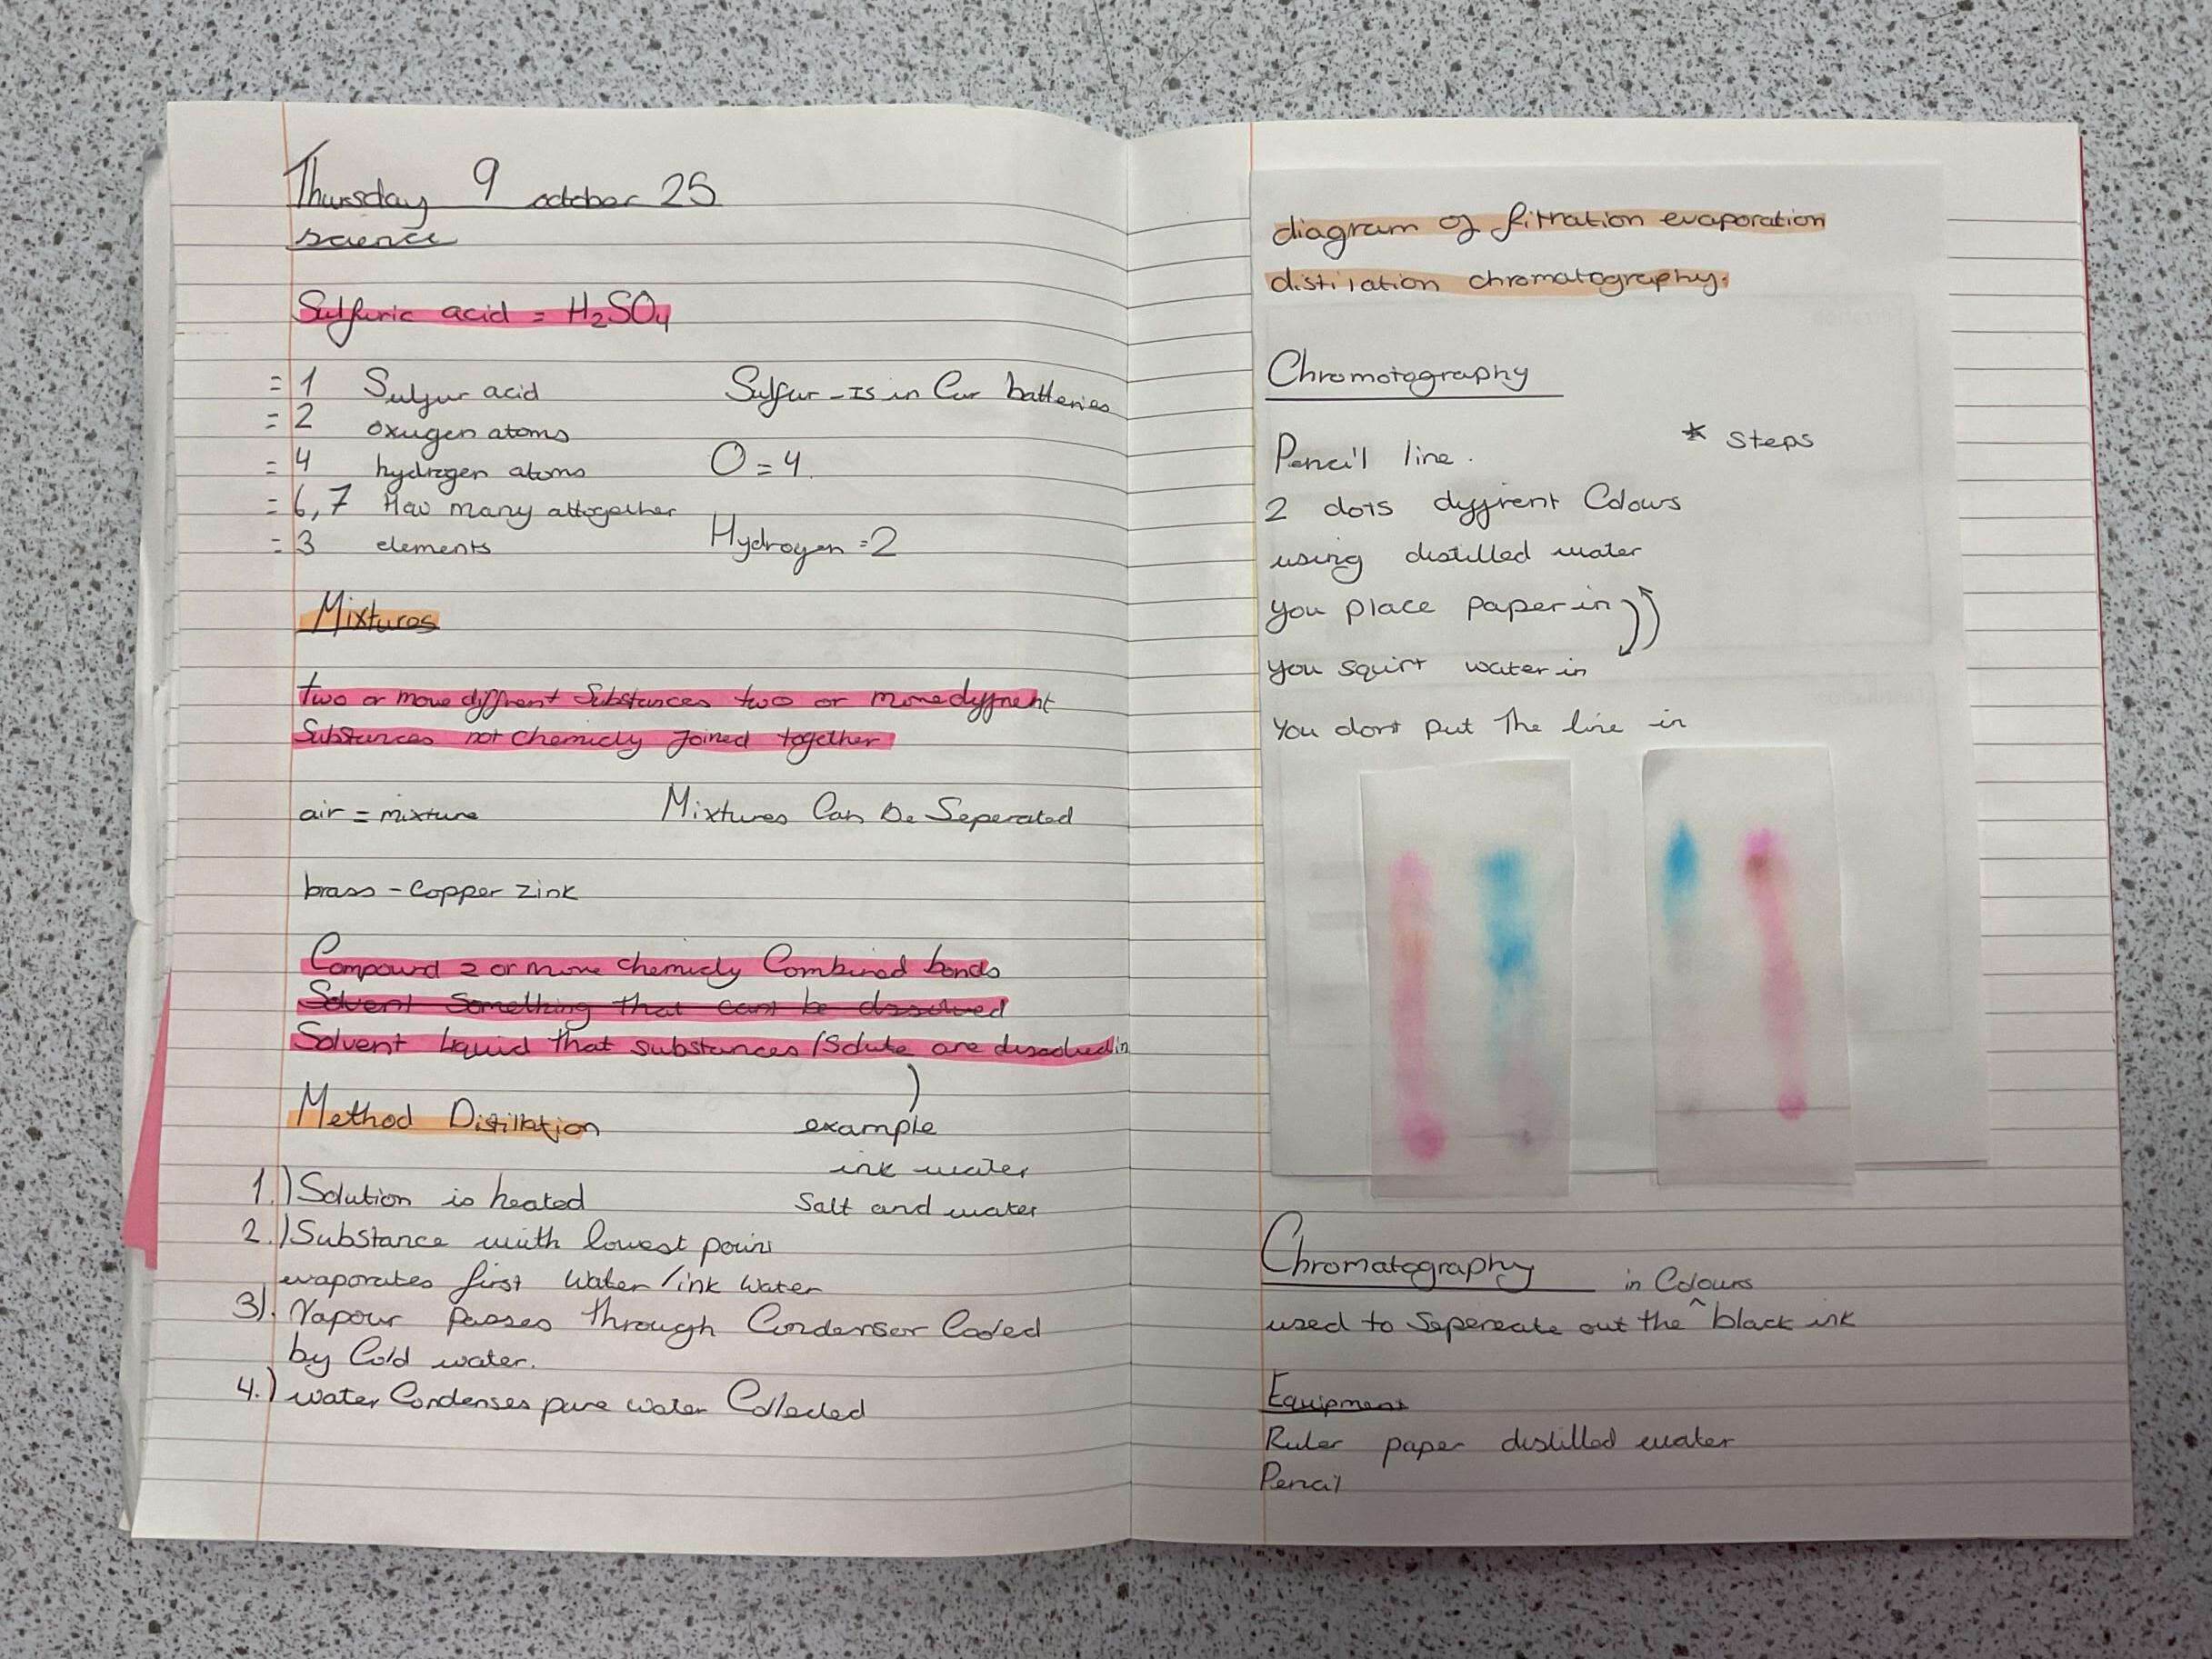 Thursday 9 october 25
science
Sulfuric acid = H₂SO₄
= 1 Sulfur acid
= 2 oxugen atoms
= 4 hydrogen atoms
= 6,7 How many altogether
= 3 elements
Sulfur - Is in Car batteries
O = 4.
Hydrogen = 2
Mixtures
two or more diffrent Substances two or more dyffrent
Substances not chemicly Joined together
air = mixture Mixtures Can Be Seperated
brass - Copper zink
Compound 2 or more chemicly Combined bonds
Solvent Something that cant be dissolved
Solvent liquid that substances / Solute are dissolved in
Method Distillation
example
ink water
Salt and water
1.) Solution is heated
2.) Substance with lowest point
evaporates first Water / ink Water
3). Vapour Passes through Condenser Cooled
by Cold water.
4.) water Condenses pure water Collected
diagram of filtration evaporation
distilation chromatography.
Chromotography
* Steps
Pencil line.
2 dots dyffrent Colours
using distilled water
you place paper in
you squirt water in
You dont put the line in
Chromatography
in Colours
used to Sepereate out the ^ black ink
Equipment
Ruler paper distilled water
Pencil